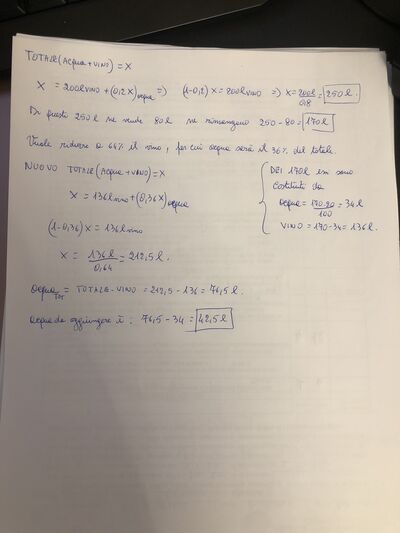 TOTALE (acqua + vino) = X
X = 200l vino + (0,2X) acqua => (1-0,2) X = 200l vino => X = 200l/0,8 = 250 l.
Di questi 250 l ne vende 80 l ne rimangono 250-80 = 170 l
Vuole ridurre a 64% il vino, per cui acqua sarà il 36% del totale.
NUOVO TOTALE (acqua + vino) = X
X = 136l vino + (0,36X) acqua
(1-0,36) X = 136 l vino
X = 136 l/0,64 = 212,5 l.
DEI 170l in vino
costituito da
acqua = 170·20/100 = 34 l
VINO = 170-34 = 136 l.
acqua TOT = TOTALE - VINO = 212,5 - 136 = 76,5 l.
acqua da aggiungere è: 76,5 - 34 = 42,5 l